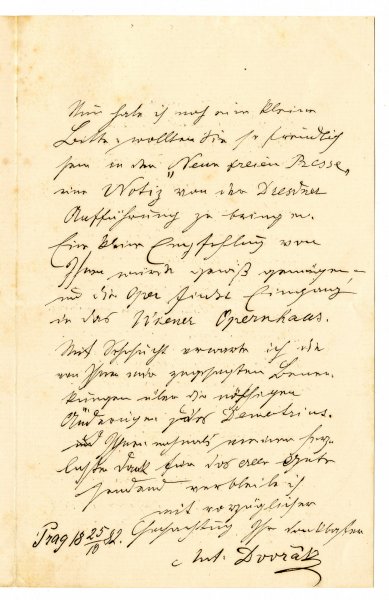 Nun habe ich noch eine kleine
Bitte; wollten Sie so freundlich
sein in der „Neuen freien Presse"
eine Notiz von der Dresdner
Aufführung zu bringen.
Eine kleine Empfehlung von
Ihnen würde gewiß genügen,
und die Oper findet Eingang
in das Wiener Opernhaus.
Mit Sehnsucht erwarte ich die
von Ihnen mir zugesagten Bemer-
kungen über die nöthigen
Änderungen des Demetrius.
Ihnen nochmals meinen herz-
lichsten Dank für das alles Gute
sendend verbleibe ich
mit vorzüglicher
Hochachtung Ihr dankbarster
Prag 18 25/10 82.
Ant. Dvořák